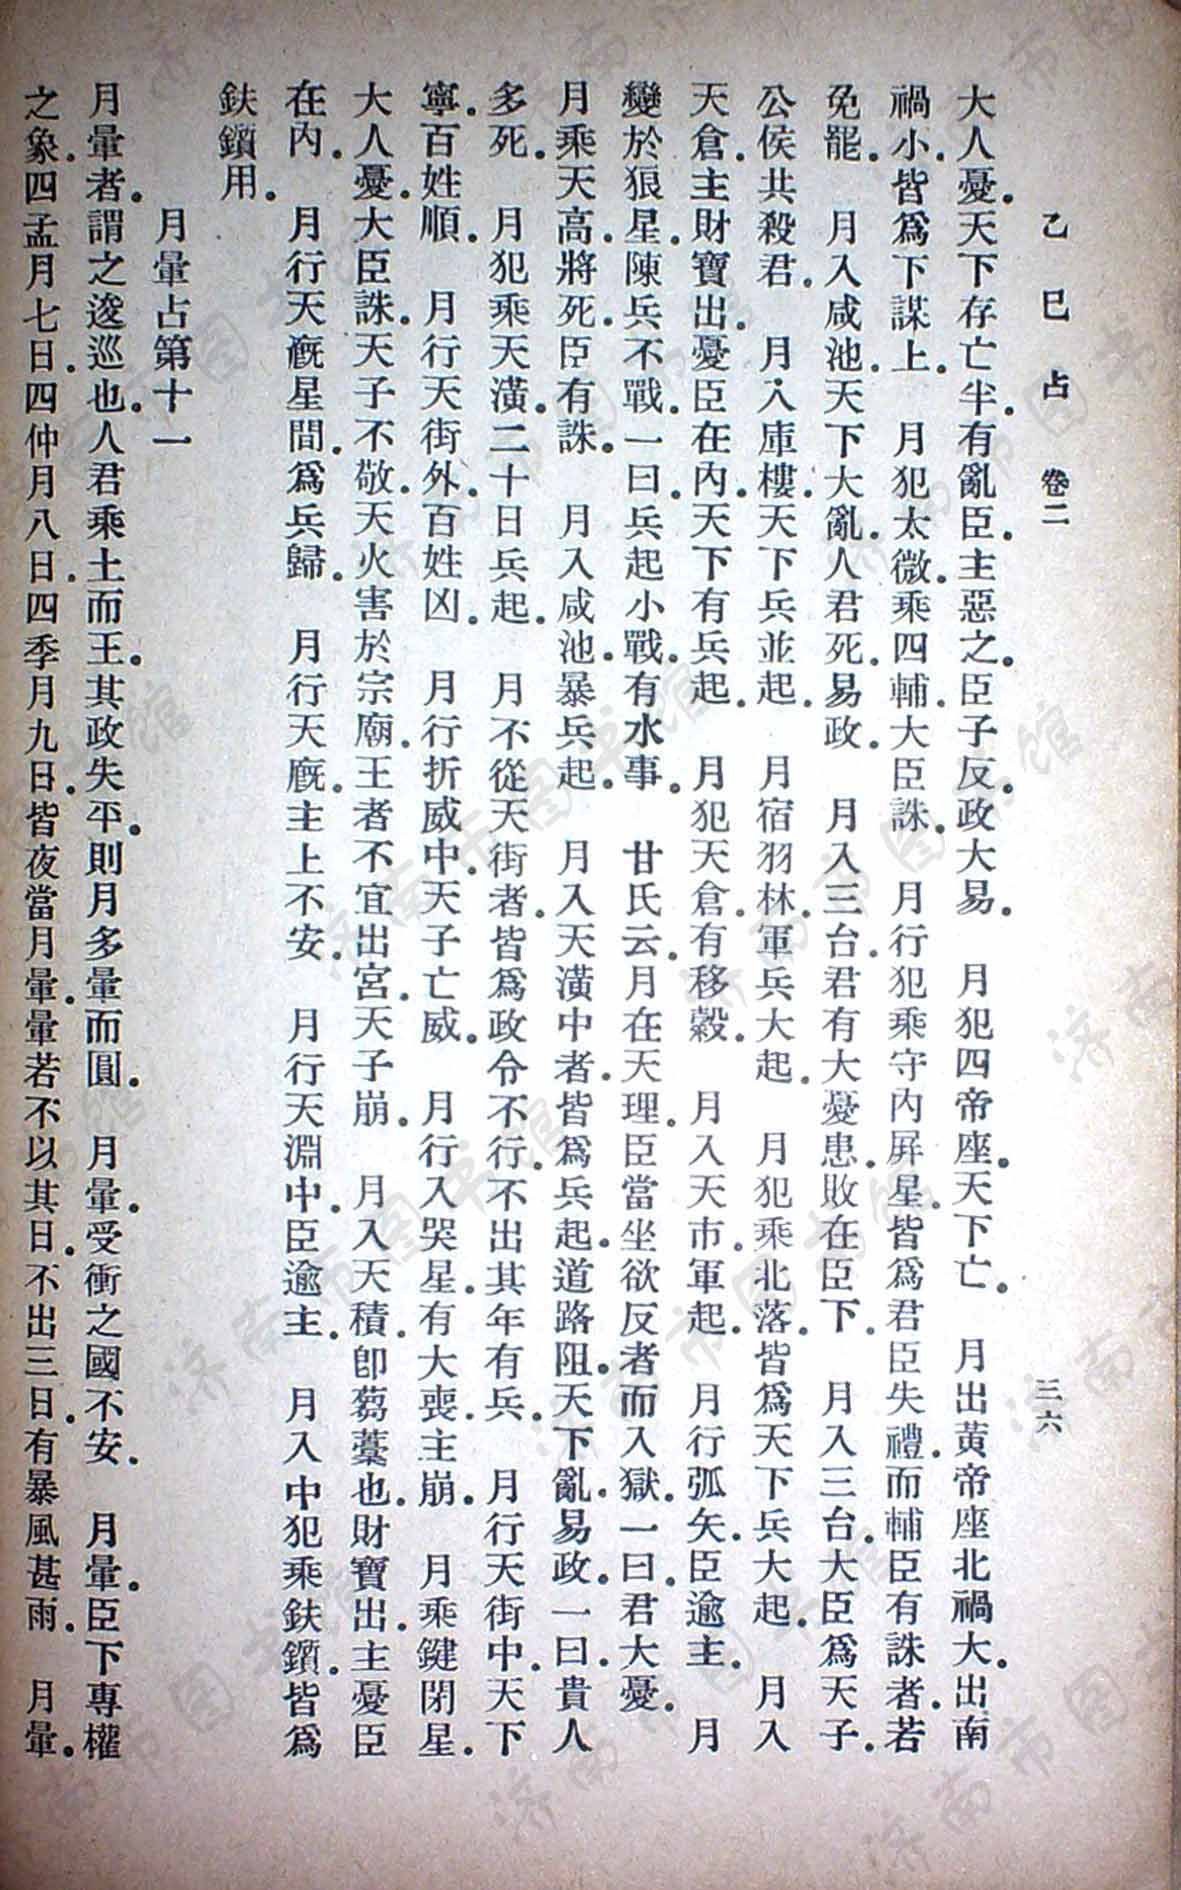 乙巳占 卷二 三六
大人憂。天下存亡半。有亂臣。主惡之。臣子反。政大易。 月犯四帝座。天下亡。 月出黃帝座北禍大。出南
禍小。皆爲下謀上。 月犯太微。乘四輔。大臣誅。 月行犯乘守內屏星。皆爲君臣失禮。而輔臣有誅者。若
免罷。 月入咸池。天下大亂。人君死。易政。 月入三台。君有大憂患。敗在臣下。 月入三台。大臣爲天子。
公侯共殺君。 月入庫樓。天下兵並起。 月宿羽林。軍兵大起。 月犯乘北落。皆爲天下兵大起。 月入
天倉。主財寶出。憂臣在內。天下有兵起。 月犯天倉。有移穀。 月入天市。軍起。 月行弧矢。臣逾主。 月
變於狼星。陳兵不戰。一曰。兵起小戰。有水事。 甘氏云。月在天理。臣當坐欲反者而入獄。一曰。君大憂。
月乘天高。將死。臣有誅。 月入咸池。暴兵起。 月入天潢中者。皆爲兵起。道路阻。天下亂。易政。一曰。貴人
多死。 月犯乘天潢。二十日兵起。 月不從天街者。皆爲政令不行。不出其年有兵。 月行天街中。天下
寧。百姓順。 月行天街外。百姓凶。 月行折威中。天子亡威。 月行入哭星。有大喪。主崩。 月乘鍵閉星。
大人憂。大臣誅。天子不敬。天火害於宗廟。王者不宜出宮。天子崩。 月入天積。卽蒭藁也。財寶出。主憂臣
在內。 月行天廐星間。爲兵歸。 月行天廐。主上不安。 月行天淵中。臣逾主。 月入中犯乘鈇鑕。皆爲
鈇鑕用。
月暈占第十一
月暈者。謂之逡巡也。人君乘土而王。其政失平。則月多暈而圓。 月暈。受衝之國不安。 月暈。臣下專權
之象。四孟月七日。四仲月八日。四季月九日。皆夜當月暈。暈若不以其日。不出三日。有暴風甚雨。 月暈。